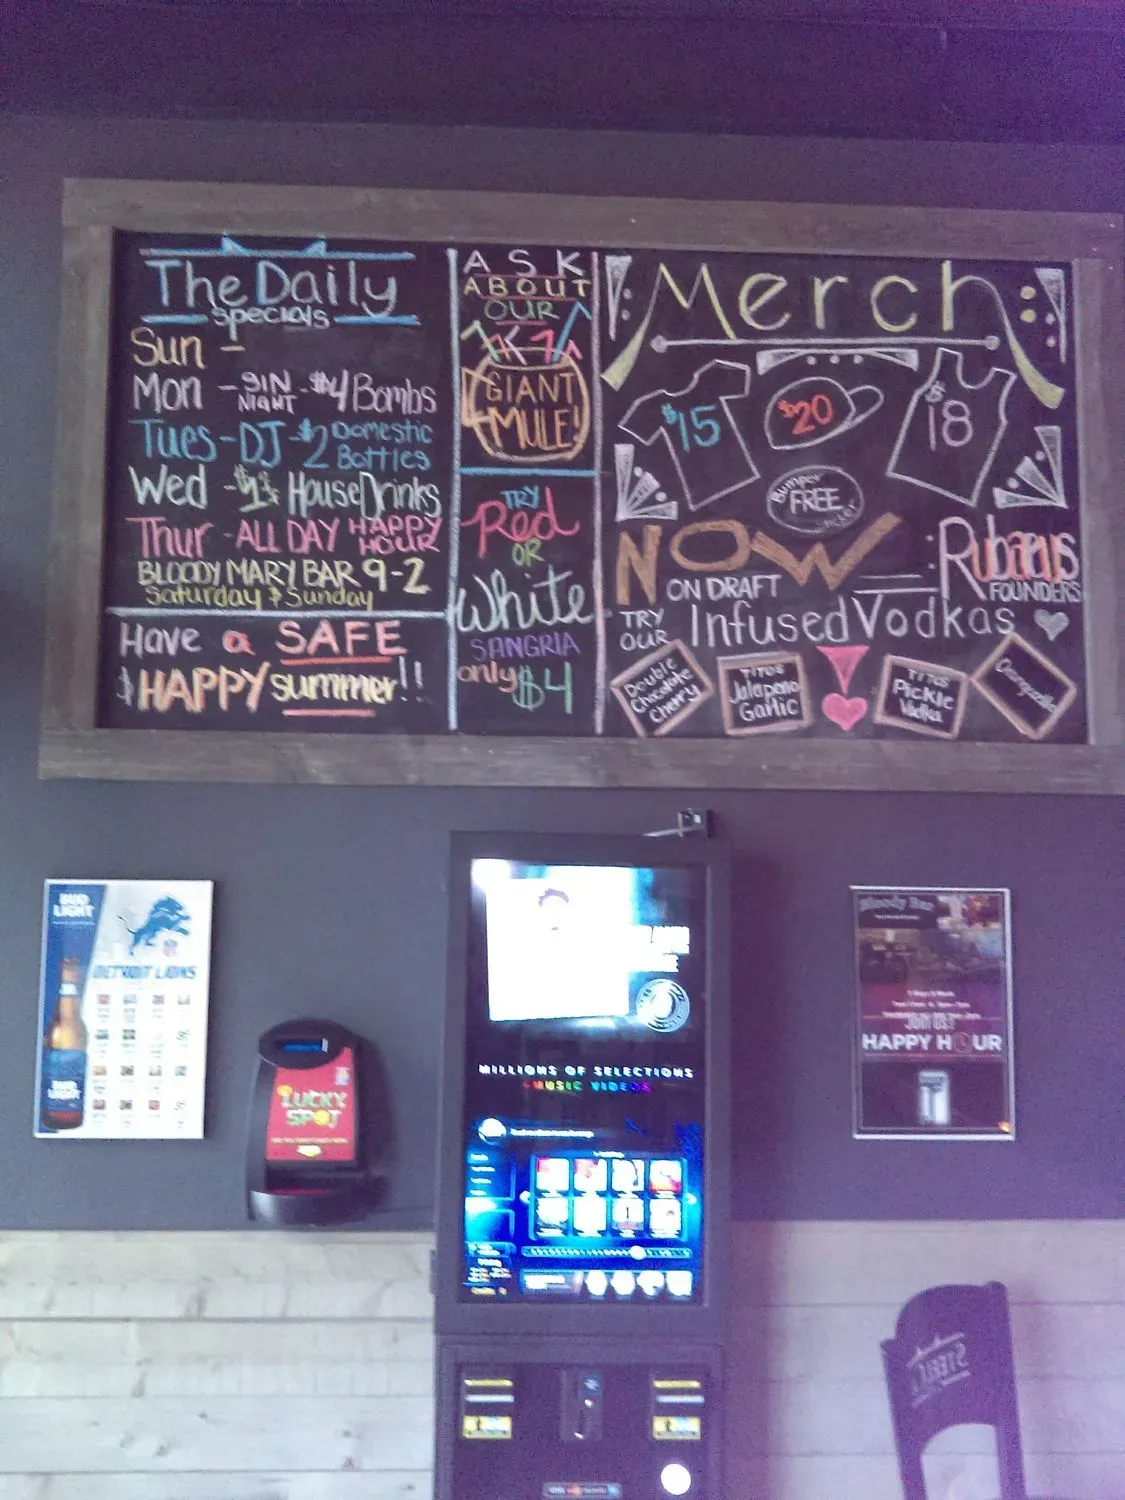 The Daily
specials
Sun -
Mon - SIN NIGHT - $4 Bombs
Tues - DJ - $2 Domestic Bottles
Wed - House Drinks
Thur - ALL DAY HAPPY HOUR
BLOODY MARY BAR 9-2
Saturday & Sunday
Have a SAFE
HAPPY summer!!
ASK
ABOUT
OUR
GIANT
MULE!
TRY
Red
OR
White
SANGRIA
only $4
Merch
$15
$20
$18
Bumper
FREE
NOW
ON DRAFT
Rubaeus
FOUNDERS
TRY OUR Infused Vodkas
Double
Chocolate
Cherry
TITOS
Jalapeno
Garlic
TITOS
Pickle
Vodka
BUD
LIGHT
DETROIT LIONS
BUD
LIGHT
LUCKY
SPOT
MILLIONS OF SELECTIONS
MUSIC VIDEOS
Bloody Bar
JOIN US!
HAPPY HOUR